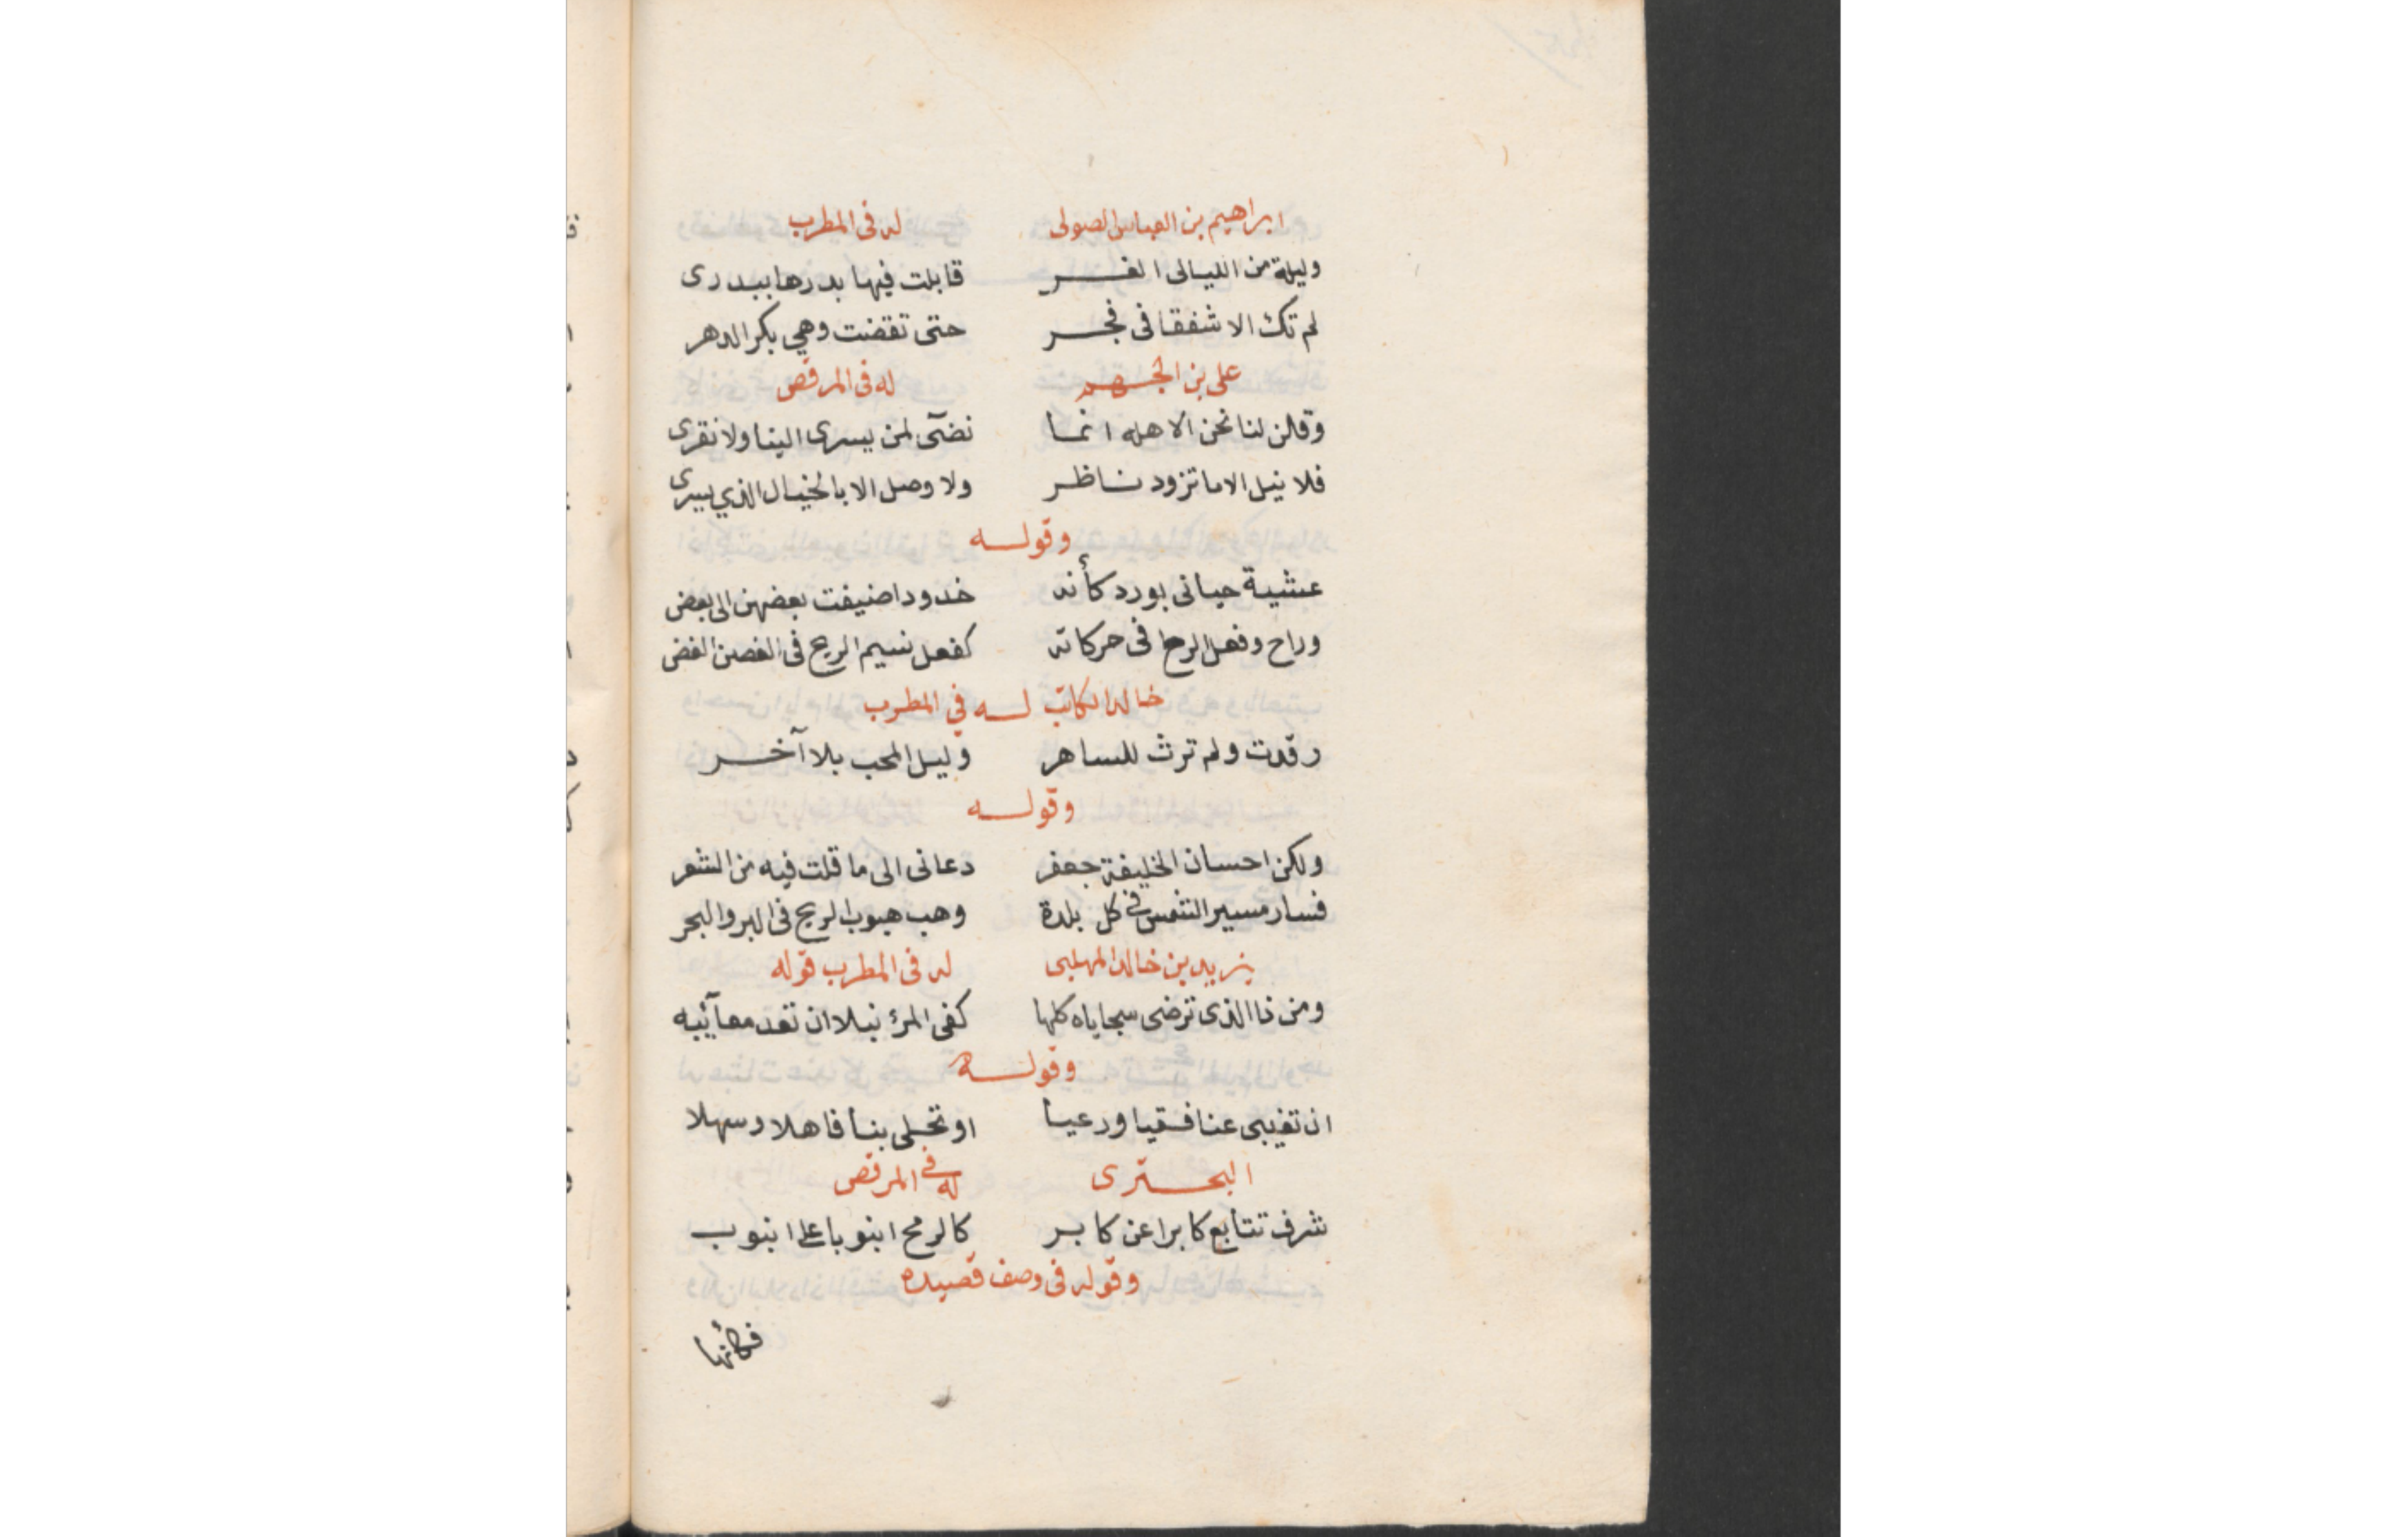 ابراهيم بن العباس الصولى له فى المطرب
وليلة من الليالى الغر قابلت فيها بدرها ببدرى
لم تك الا شفقا فى فجر حتى تقضت وهي بكر الدهر
على بن الجهم له فى المرقص
وقلن لنا نحن الاهله انما نضئ لمن يسرى الينا ولا نقرى
فلا نيل الا ما تزود ناظر ولا وصل الا بالخيال الذي يسرى
وقوله
عشية حيانى بورد كأنه خدود اضيفت بعضهن الى بعض
وراح وفعل الرحا فى حركاته كفعل نسيم الريح فى الغصن الغض
خالد الكاتب له في المطرب
رقدت ولم ترث للساهر وليل المحب بلا آخر
وقوله
ولكن احسان الخليفة جعفر دعانى الى ما قلت فيه من الشعر
فسار مسير الشمس فى كل بلدة وهب هبوب الريح فى البر والبحر
يزيد بن خالد المهلبى له فى المطرب قوله
ومن ذا الذى ترضى سجاياه كلها كفى المرء نبلا ان تعد معآئبه
وقوله
ان تغيبى عنا فسقيا ورعيا او تحلى بنا فاهلا وسهلا
البحترى له فى المرقص
شرف تتابع كابرا عن كابر كالرمح انبوبا على انبوب
وقوله فى وصف قصيده
فكأنها